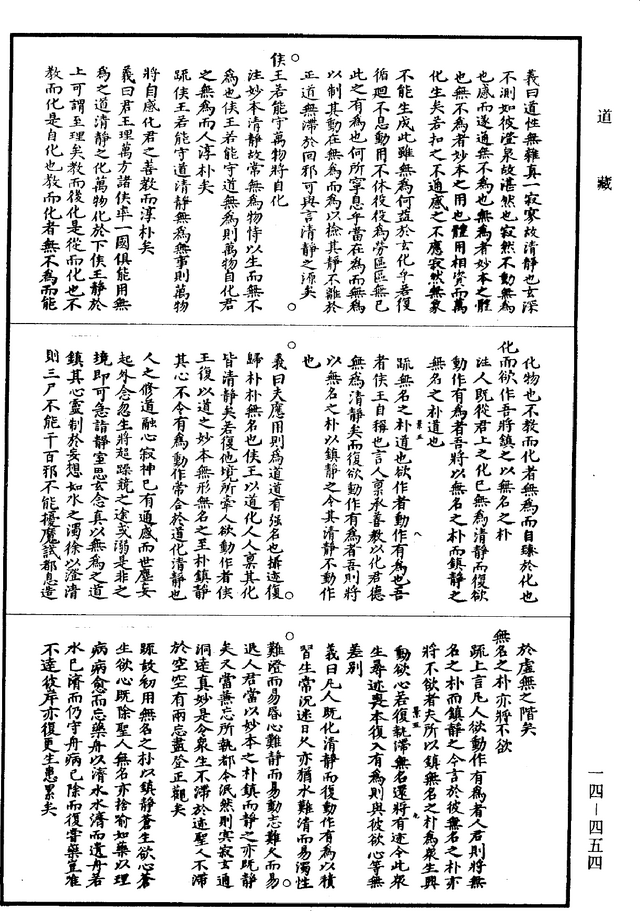 道藏
義曰道性無雜真一寂寥故清靜也玄深
不測如彼澄泉故湛然也寂然不動無為
也感而遂通無不為也無為者妙本之體
也無不為者妙本之用也體用相資而萬
化生矣若扣之不通感之不應寂然無象
不能生成此雖無為何益於玄化乎吾復
循迴不息動用不休役役為勞區區無已
此之有為也何所寧息乎當在為而無為
以制其動在無為而為以檢其靜不離於
正道無滯於回邪可與言清靜之源矣
侯王若能守萬物將自化
注妙本清靜故常無為物恃以生而無不
為也侯王若能守道無為則萬物自化君
之無為而人淳朴矣
疏侯王若能守道清靜無為無事則萬物
將自感化君之善教而淳朴矣
義曰君王理萬方諸侯率一國俱能用無
為之道清靜之化萬物化於下侯王靜於
上可謂至理矣教而後化是從而化也不
教而化是自化也教而化者無不為而能
化物也不教而化者無為而自臻於化也
化而欲作吾將鎮之以無名之朴
注人既從君上之化已無為清靜而復欲
動作有為者吾將以無名之朴而鎮靜之
無名之朴道也
疏無名之朴道也欲作者動作有為也吾
者侯王自稱也言人稟承善教以化君德
無為清靜矣而復欲動作有為者吾則將
以無名之朴以鎮靜之令其清靜不動作
也
義曰夫應用則為道道有強名也攝迹復
歸朴朴無名也侯王以道化人人稟其化
皆清靜矣若復他境所牽人欲動作者侯
王復以道之妙本無形無名之至朴鎮靜
其心不令有為動作常合於道化清靜也
人之修道融心寂神已有通感而世塵妄
起外念忽生將超躁競之途或溺是非之
境即可急詣靜室思玄念真以無為之道
鎮其心靈制於妄想如水之濁徐以澄清
則三尸不能干百邪不能擾魔試都息造
於虛無之階矣
無名之朴亦將不欲
疏上言凡人欲動作有為者人君則將無
名之朴而鎮靜之今言於彼無名之朴亦
將不欲者夫所以鎮無名之朴為眾生興
動欲心若復執滯無名還將有迹令此眾
生尋迹喪本復入有為則與彼欲心等無
差別
義曰凡人既化清靜而復動作有為以積
習生常沉迷日久亦猶水難清而易濁性
難澄而易昏心難靜而易動忘難久而易
退人君當以妙本之朴鎮而靜之亦既靜
矣又當無忘所執都令泯然則冥寂玄通
洞達真妙是令眾生不滯於迹聖人不滯
於空空有兩忘盡登正觀矣
疏故初用無名之朴以鎮靜蒼生欲心蒼
生欲心既除聖人無名亦捨喻如藥以理
病病愈而忘藥舟以濟水水濟而遺舟若
水已濟而仍守舟病已除而復嘗藥豈唯
不達彼岸亦復更生患累矣
一四—四五四